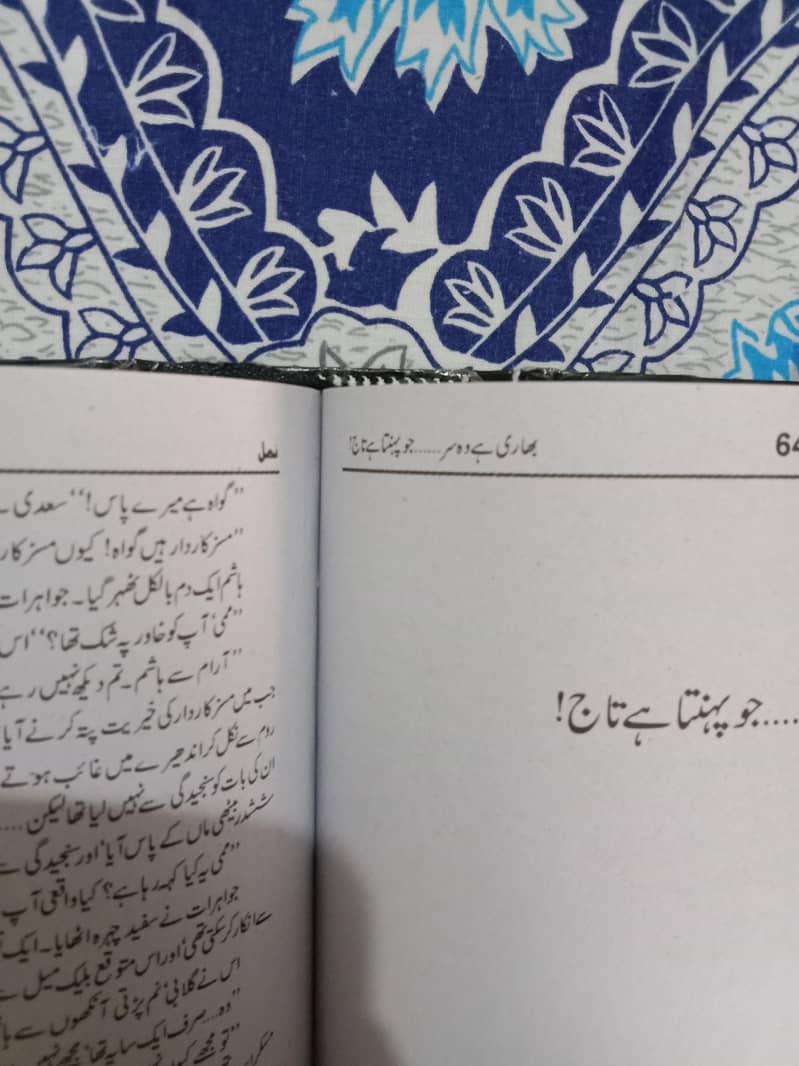 بھاری ہے وہ سر......جو پہنتا ہے تاج!
64
.....جو پہنتا ہے تاج!
نمل
”گواہ ہے میرے پاس!“ سعدی
”مسز کاردار ہیں گواہ! کیوں مسز کار
ہاشم ایک دم بالکل ٹھہر گیا۔ جواہرات
”ممی‘ آپ کو خاور پہ شک تھا؟“ اس
”آرام سے ہاشم۔ تم دیکھ نہیں رہے
جب میں مسز کاردار کی خیریت پتہ کرنے آیا
روم سے نکل کر اندھیرے میں غائب ہوتے
ان کی بات کو سنجیدگی سے نہیں لیا تھا لیکن....
ششدر بیٹھی ماں کے پاس آیا‘ اور سنجیدگی سے
”ممی یہ کیا کہہ رہا ہے؟ کیا واقعی آپ
جواہرات نے سفید چہرہ اٹھایا۔ ایک
سے انکار کر سکتی تھی‘ اور اس متوقع بلیک میل
اس نے گلابی‘ نم پڑتی آنکھوں سے
”وہ... صرف ایک سایہ تھا‘ مجھے نہیں
”تو مجھے کیوں